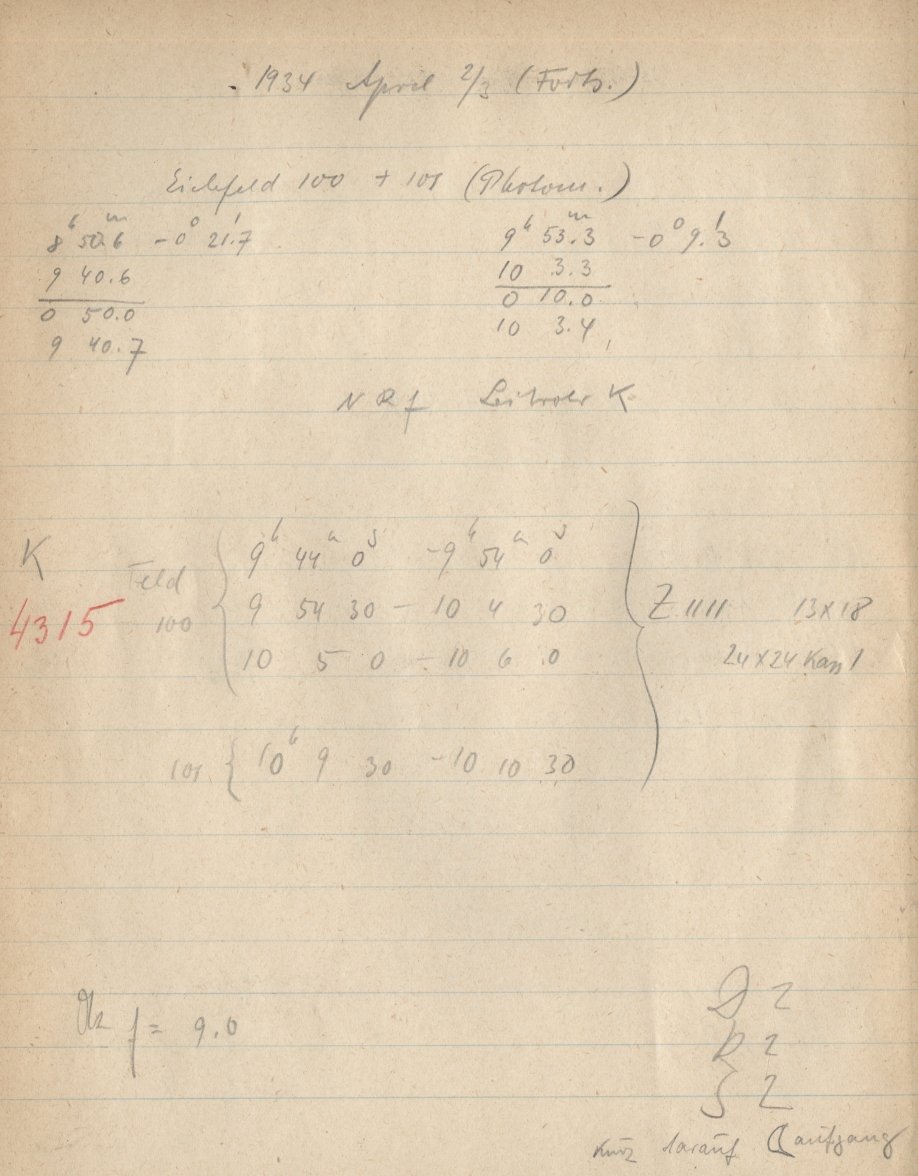 1934 April 2/3 (Forts.)
Eichfeld 100 + 101 (Photom.)
8h 50m.6 -0° 21'.7
9 40.6
0 50.0
9 40.7
9h 53m.3 -0° 9'.3
10 3.3
0 10.0
10 3.4
Leitrohr K
K
4315
Feld
100
9h 44m 0s - 9h 54m 0s
9 54 30 - 10 4 30
10 5 0 - 10 6 0
Z 1111 13x18
24x24 Kass 1
101 { 10h 9 30 - 10 10 30
f = 9.0
D 2
R 2
S 2
kurz darauf ☾aufgang